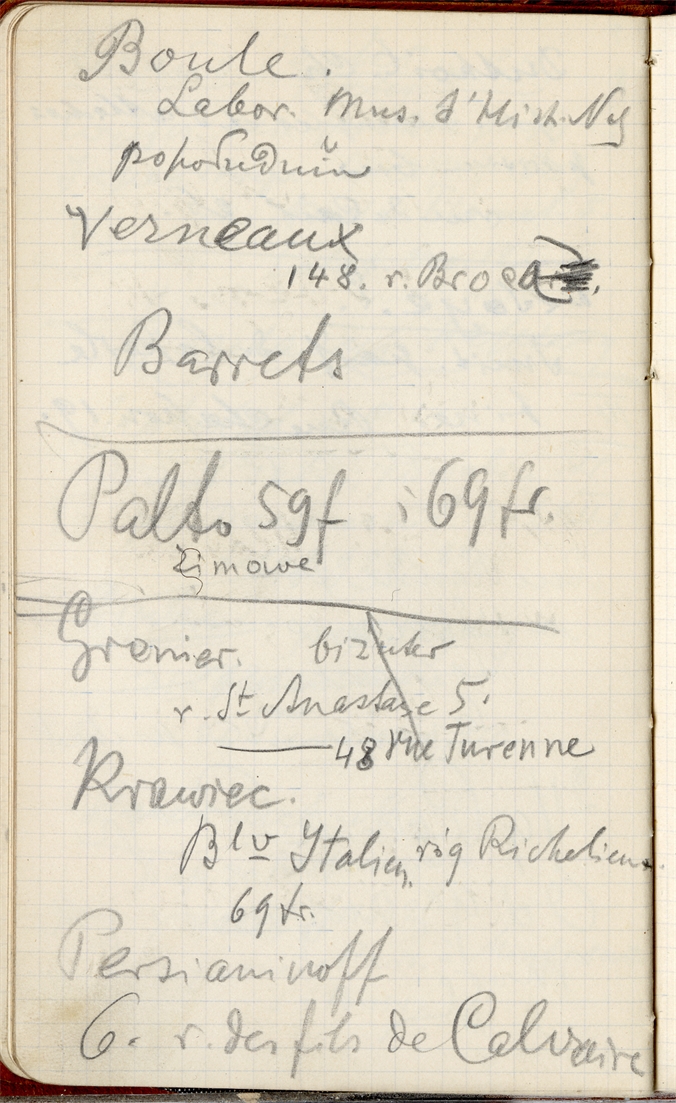 Boule.
Labor. Mus. d'Hist. Nat
popołudniu
Verneaux
148. r. Broca
Barrets
Palto 59f i 69 fr.
zimowe
Granier. biżuter
r. St Anastase 5.
48 rue Turenne
Krawiec.
Blv Italien. róg Richelieu.
69 fr.
Persianinoff
6. r. des fils de Calvaire